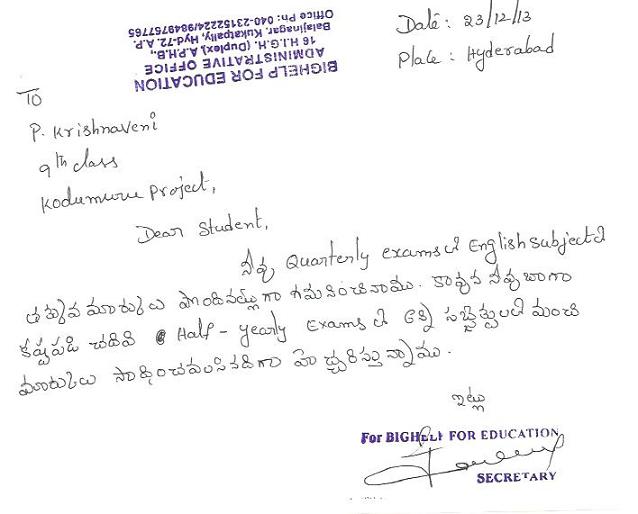 BIGHELP FOR EDUCATION
ADMINISTRATIVE OFFICE
16 H.I.G.H (Duplex), A.P.H.B.,
Balajinagar, Kukatpally, Hyd-72. A.P.
Office Ph: 040-23152224/9849757765
Date : 23/12/13
Place : Hyderabad
To
P. Krishnaveni
9th class
Kodumuru Project,
Dear Student,
నీవు Quarterly exams లో English Subject లో
తక్కువ మార్కులు పొందినట్లుగా గమనించినాము. కావున నీవు బాగా
కష్టపడి చదివి Half - yearly Exams లో అన్ని సబ్జెక్టులలో మంచి
మార్కులు సాధించవలసినదిగా హెచ్చరిస్తున్నాము.
ఇట్లు
For BIGHELP FOR EDUCATION
SECRETARY